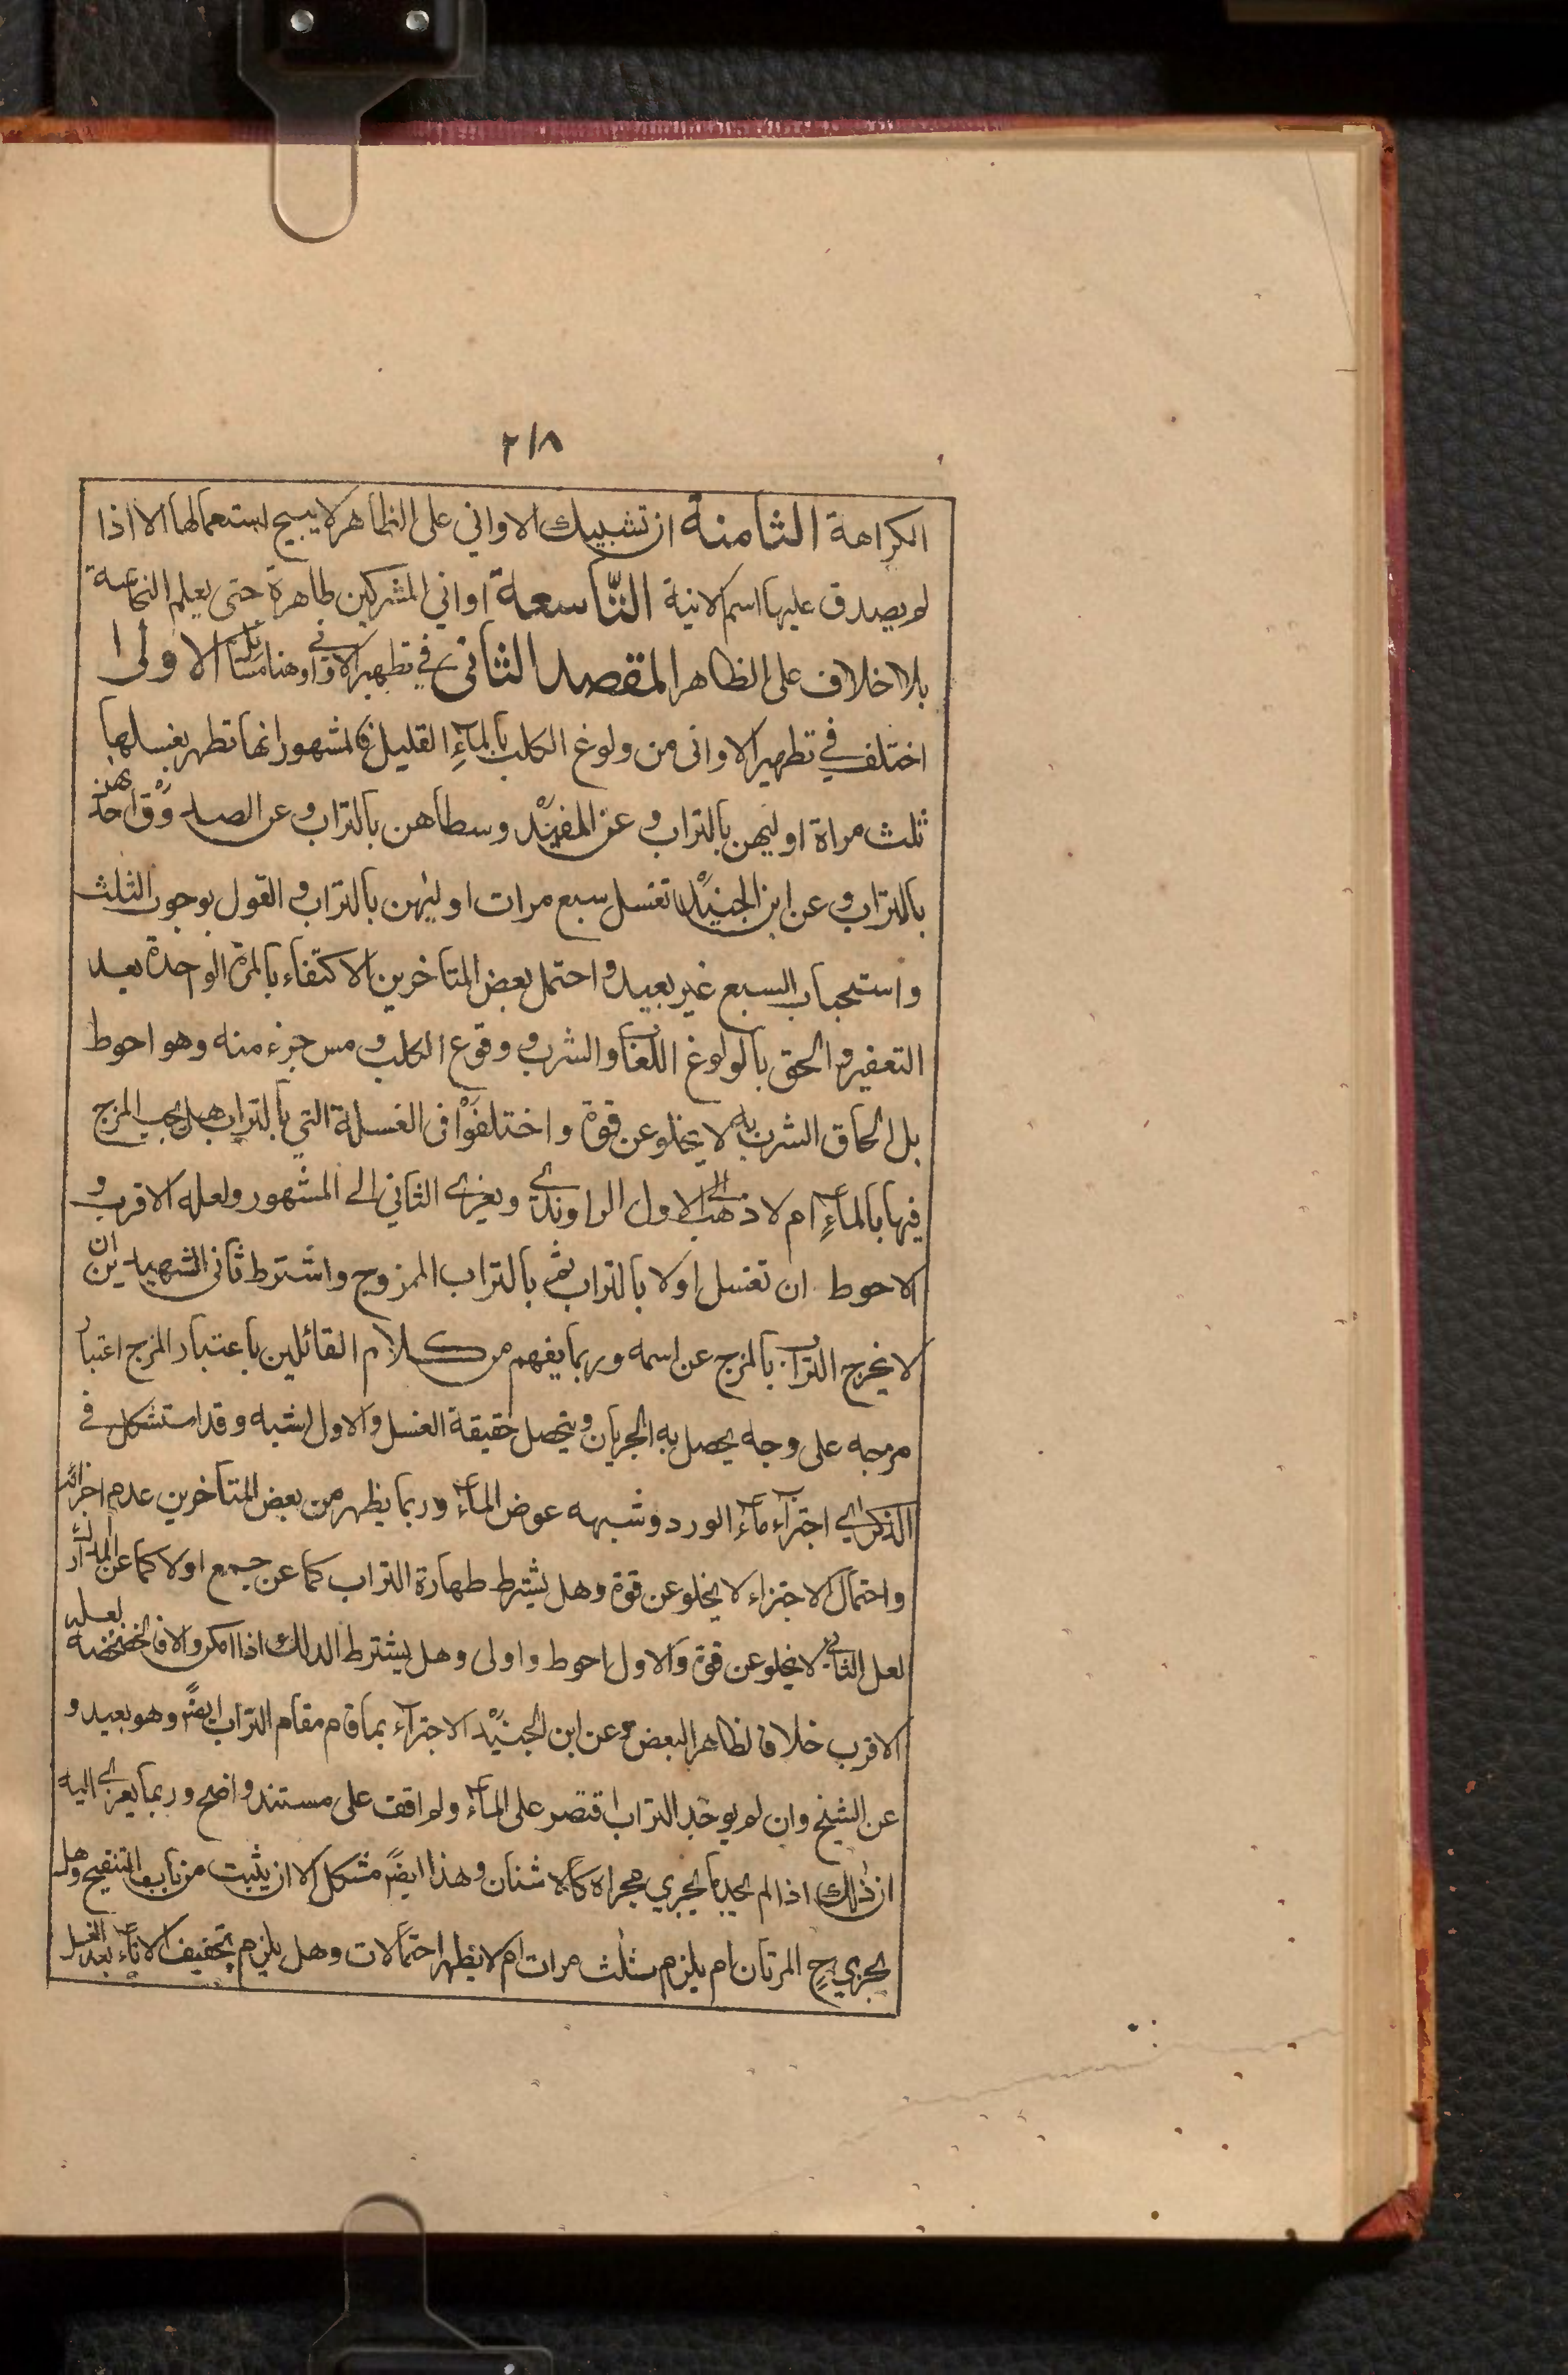 ٢١٨
الكراهة الثامنة ان تشبيك الاواني على الظاهر لا يبيح استعمالها الا اذا
لم يصدق عليها اسم الانية التاسعة اواني المشركين طاهرة حتى يعلم النجاسة
بلا خلاف على الظاهر المقصد الثاني في تطهير الاواني وهنا مسائل الاولى
اختلف في تطهير الاواني من ولوغ الكلب بالماء القليل فالمشهور انها تطهر بغسلها
ثلث مراة اوليهن بالتراب وعن المفيد وسطاهن بالتراب وعن الصدوق احدهن
بالتراب وعن ابن الجنيد تغسل سبع مرات اوليهن بالتراب والقول بوجوب الثلث
واستحباب السبع غير بعيد واحتمل بعض المتاخرين الاكتفاء بالمرة الواحدة بعد
التعفير والحق بالولوغ اللعاب والشرب ووقوع الكلب ومس جزء منه وهو احوط
بل الحاق الشرب به لا يخلو عن قوة واختلفوا في الغسلة التي بالتراب هل يجب المزج
فيها بالماء ام لا ذهب الى الاول الراوندي ويعزى الثاني الى المشهور ولعله الاقرب و
الاحوط ان تغسل اولا بالتراب ثم بالتراب الممزوج واشترط ثاني الشهيدين ان
لا يخرج التراب بالمزج عن اسمه وربما يفهم من كلام القائلين باعتبار المزج اعتبار
مزجه على وجه يحصل به الجريان ويتحصل حقيقة الغسل والاول اشبه وقد استشكل في
الذكرى اجتزاء ماء الورد وشبهه عوض الماء وربما يظهر من بعض المتأخرين عدم اجزائه
واحتمال الاجتزاء لا يخلو عن قوة وهل يشترط طهارة التراب كما عن جمع اولا كما عن المدارك
لعل الثاني لا يخلو عن قوة والاول احوط واولى وهل يشترط الدلك اذا امكن والا فالخضخضة لعله
الاقرب خلافا لظاهر البعض وعن ابن الجنيد الاجتزاء بما قام مقام التراب ايضا وهو بعيد و
عن الشيخ وان لم يوجد التراب اقتصر على الماء ولم اقف على مستند واضح وربما يعزى اليه
ان ذلك اذا لم يجد ما يجري مجراه كالاشنان وهذا ايضا مشكل الا ان يثبت من باب التنقيح وهل
يجزي ح المرتان ام يلزم ثلث مرات ام لا يطهر احتمالات وهل يلزم تجفيف الاناء بعد الغسل